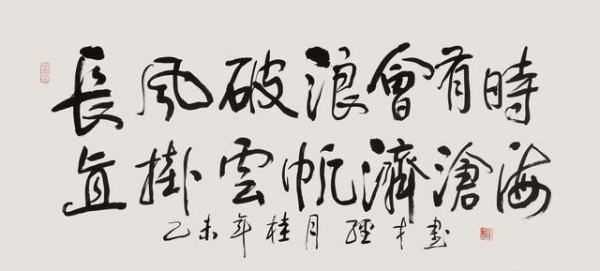 長風破浪會有時
直掛雲帆濟滄海
乙未年桂月 經才書